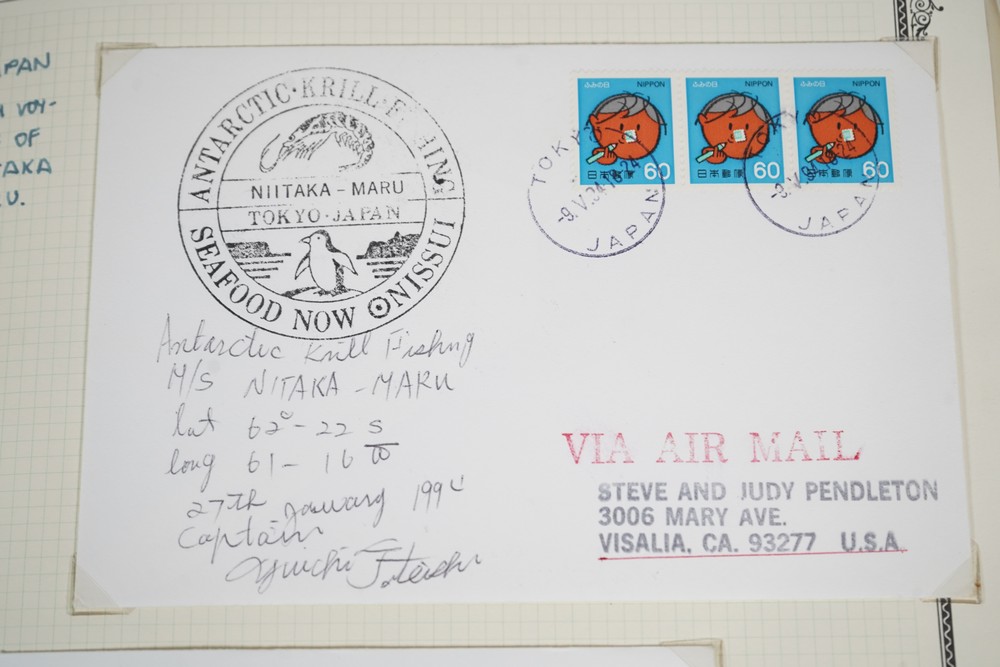 PAN
VOY-
OF
TAKA
U.
ANTARCTIC·KRILL·F HING
NIITAKA-MARU
TOKYO·JAPAN
SEAFOOD NOW NISSUI
ふみの日 NIPPON
日本郵便 60
ふみの日 NIPPON
日本郵便 60
ふみの日 NIPPON
日本郵便 60
TOKYO
-9.V.84.18-24
JAPAN
TOKYO
-9.V.84.18-24
JAPAN
Antarctic Krill Fishing
M/S NITAKA-MARU
lat 62°-22 S
long 61-16 W
27th January
Captain
VIA AIR MAIL
STEVE AND JUDY PENDLETON
3006 MARY AVE.
VISALIA, CA. 93277 U.S.A.